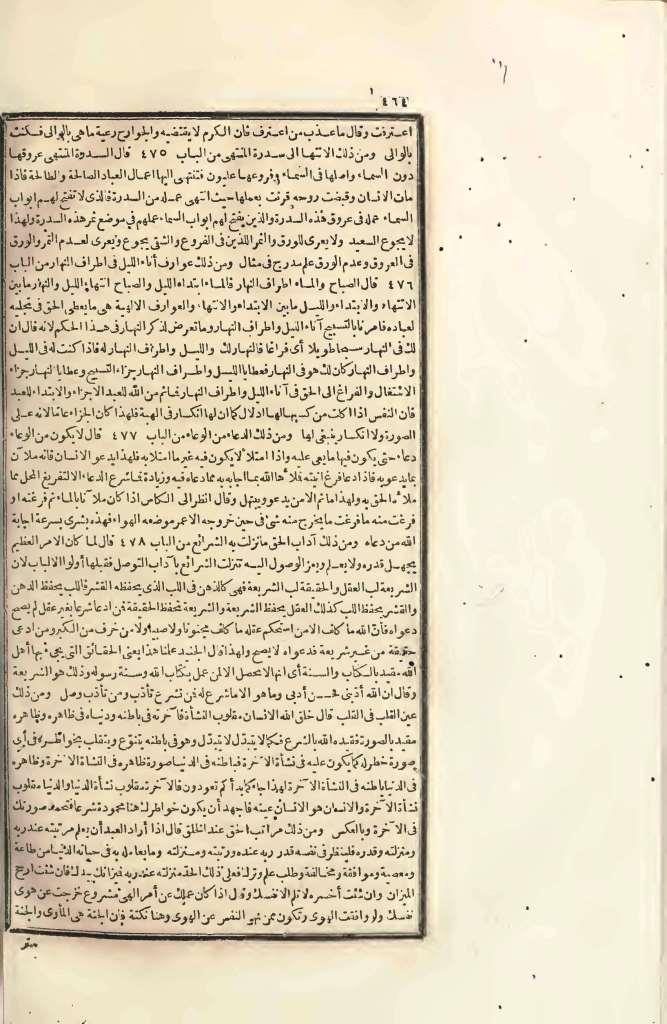 ٤٦٤
اعترفت وقال ما عذب من اعترف فان الكرم لا يقتضيه والجوارح رعية ما هى بالوالى فكنت
بالوالى ومن ذلك الانتها الى سدرة المنتهى من الباب ٤٧٥ قال السدرة المنتهى عروقها
دون السماء واصلها فى السماء وفروعها عليون فتنتهى اليها اعمال العباد الصالحة والطالحة فاذا
مات الانسان وقبضت روحه قرنت بعملها حيث انتهى عمله من السدرة فالذى لا تفتح لهم ابواب
السماء عمله فى عروق هذه السدرة والذين يفتح لهم ابواب السماء عملهم فى موضع ثمر هذه السدرة ولهذا
لا يجوع السعيد ولا يعرى للورق والثمر اللذين فى الفروع والشقى يجوع ويعرى لعدم الثمر والورق
فى العروق وعدم الورق علم مدرج فى مثال ومن ذلك عوارف أناء الليل فى اطراف النهار من الباب
٤٧٦ قال الصباح والمساء اطراف النهار فالمساء ابتداء الليل والصباح انتهاء الليل والنهار ما بين
الانتهاء والابتداء والليل ما بين الابتداء والانتهاء والعوارف الالهية هى ما يعطى الحق فى تجليه
لعباده فامرنا بالتسبيح آناء الليل واطراف النهار وما تعرض لذكر النهار فى هذا الحكم لانه قال ان
لك فى النهار سبحا طويلا أى فراغا فالنهار لك والليل واطراف النهار له فاذا كنت له فى الليل
واطراف النهار كان لك هو فى النهار فعطايا الليل واطراف النهار جزاء التسبيح وعطايا النهار جزاء
الاشتغال والفراغ الى الحق فى آناء الليل واطراف النهار فما تم من الله للعبد الا جزاء والابتداء للعبد
فان النفس اذا اكلت من كسبها لها ادلال كما ان لها انكسار فى الهبة فلهذا كان الجزاء عاما لانه على
الصورة ولا انكسار ينبغى لها ومن ذلك الدعاء من الوعاء من الباب ٤٧٧ قال لا يكون من الوعاء
دعاء حتى يكون فيها ما يعى عليه واذا امتلأ لا يكون فيه غير ما امتلأ به فلهذا يدعو الانسان فانه ملآن
بما يدعو به فاذا دعا فرغ آنيته فملأها الله بما اجابه به مما دعاه فيه وزيادة فما شرع الدعاء الا لتفريغ المحل مما
ملأه الحق به ولهذا ما ثم الا من يدعو ويبتهل وقال انظر الى الكاس اذا كان ملآنا بالماء ثم فرغته او
فرغت منه ما فرغت ما يخرج منه شئ فى حين خروجه الا عمر موضعه الهواء فهذه بشرى بسرعة اجابة
الله من دعاه ومن ذلك آداب الحق ما نزلت به الشرائع من الباب ٤٧٨ قال لما كان الامر العظيم
يجهل قدره ولا يعلم ويعز الوصول اليه تنزلت الشرائع بآداب التوصل فقبلها أولوا الالباب لان
الشريعة لب العقل والحقيقة لب الشريعة فهى كالدهن فى اللب الذى يحفظه القشر فاللب يحفظ الدهن
والقشر يحفظ اللب كذلك العقل يحفظ الشريعة والشريعة تحفظ الحقيقة فمن ادعا شرعا بغير عقل لم يصح
دعواه فان الله ما كلف الا من استحكم عقله ما كلف مجنونا ولا صبيا ولا من خرف من الكبر ومن ادعى
حقيقة من غير شريعة فدعواه لا يصح ولهذا قال الجنيد علمنا هذا يعنى الحقائق التى يجئ بها أهل
الله مقيد بالكتاب والسنة أى انها لا تحصل الا لمن عمل بكتاب الله وسنة رسوله وذلك هو الشريعة
وقال ان الله أدبنى فحسن أدبى وما هو الا ما شرع له فمن تشرع تأدب ومن تأدب وصل ومن ذلك
عين القلب فى القلب قال خلق الله الانسان مقلوب النشأة فآخرته فى باطنه ودنياه فى ظاهره وظاهره
مقيد بالصورة فقيده الله بالشرع فكما لا يتبدل لا يتبدل وهو فى باطنه يتنوع ويتقلب بخواطره فى أى
صورة خطر له كما يكون عليه فى نشأة الآخرة فباطنه فى الدنيا صورة ظاهره فى النشاة الاخرة وظاهره
فى الدنيا باطنه فى النشاة الآخرة لهذا جاء كما بدأكم تعودون فالآخرة مقلوب نشأة الدنيا والدنيا مقلوب
نشأة الآخرة والانسان هو الانسان عينه فاجهد أن يكون خواطرك هنا محمودة شرعا فتجمل صورتك
فى الآخرة وبالعكس ومن ذلك مراتب الحق عند الخلق قال اذا أراد العبد أن يعلم مرتبته عند ربه
ومنزلته وقدره فلينظر فى نفسه قدر ربه عنده ورتبته ومنزلته وما يعامله به فى حياته الدنيا من طاعة
ومعصية وموافقة ومخالفة وطلب علم وترك فعلى ذلك الحد منزلته عند ربه فميزانك بيدك فان شئت ارجح
الميزان وان شئت أخسره لا تلم الا نفسك وقال اذا كان عملك عن أمر الهى مشروع خرجت عن هوى
نفسك ولو وافقت الهوى وتكون ممن نهو النفس عن الهوى وهنا نكتة فان الجنة هى المأوى والجنة